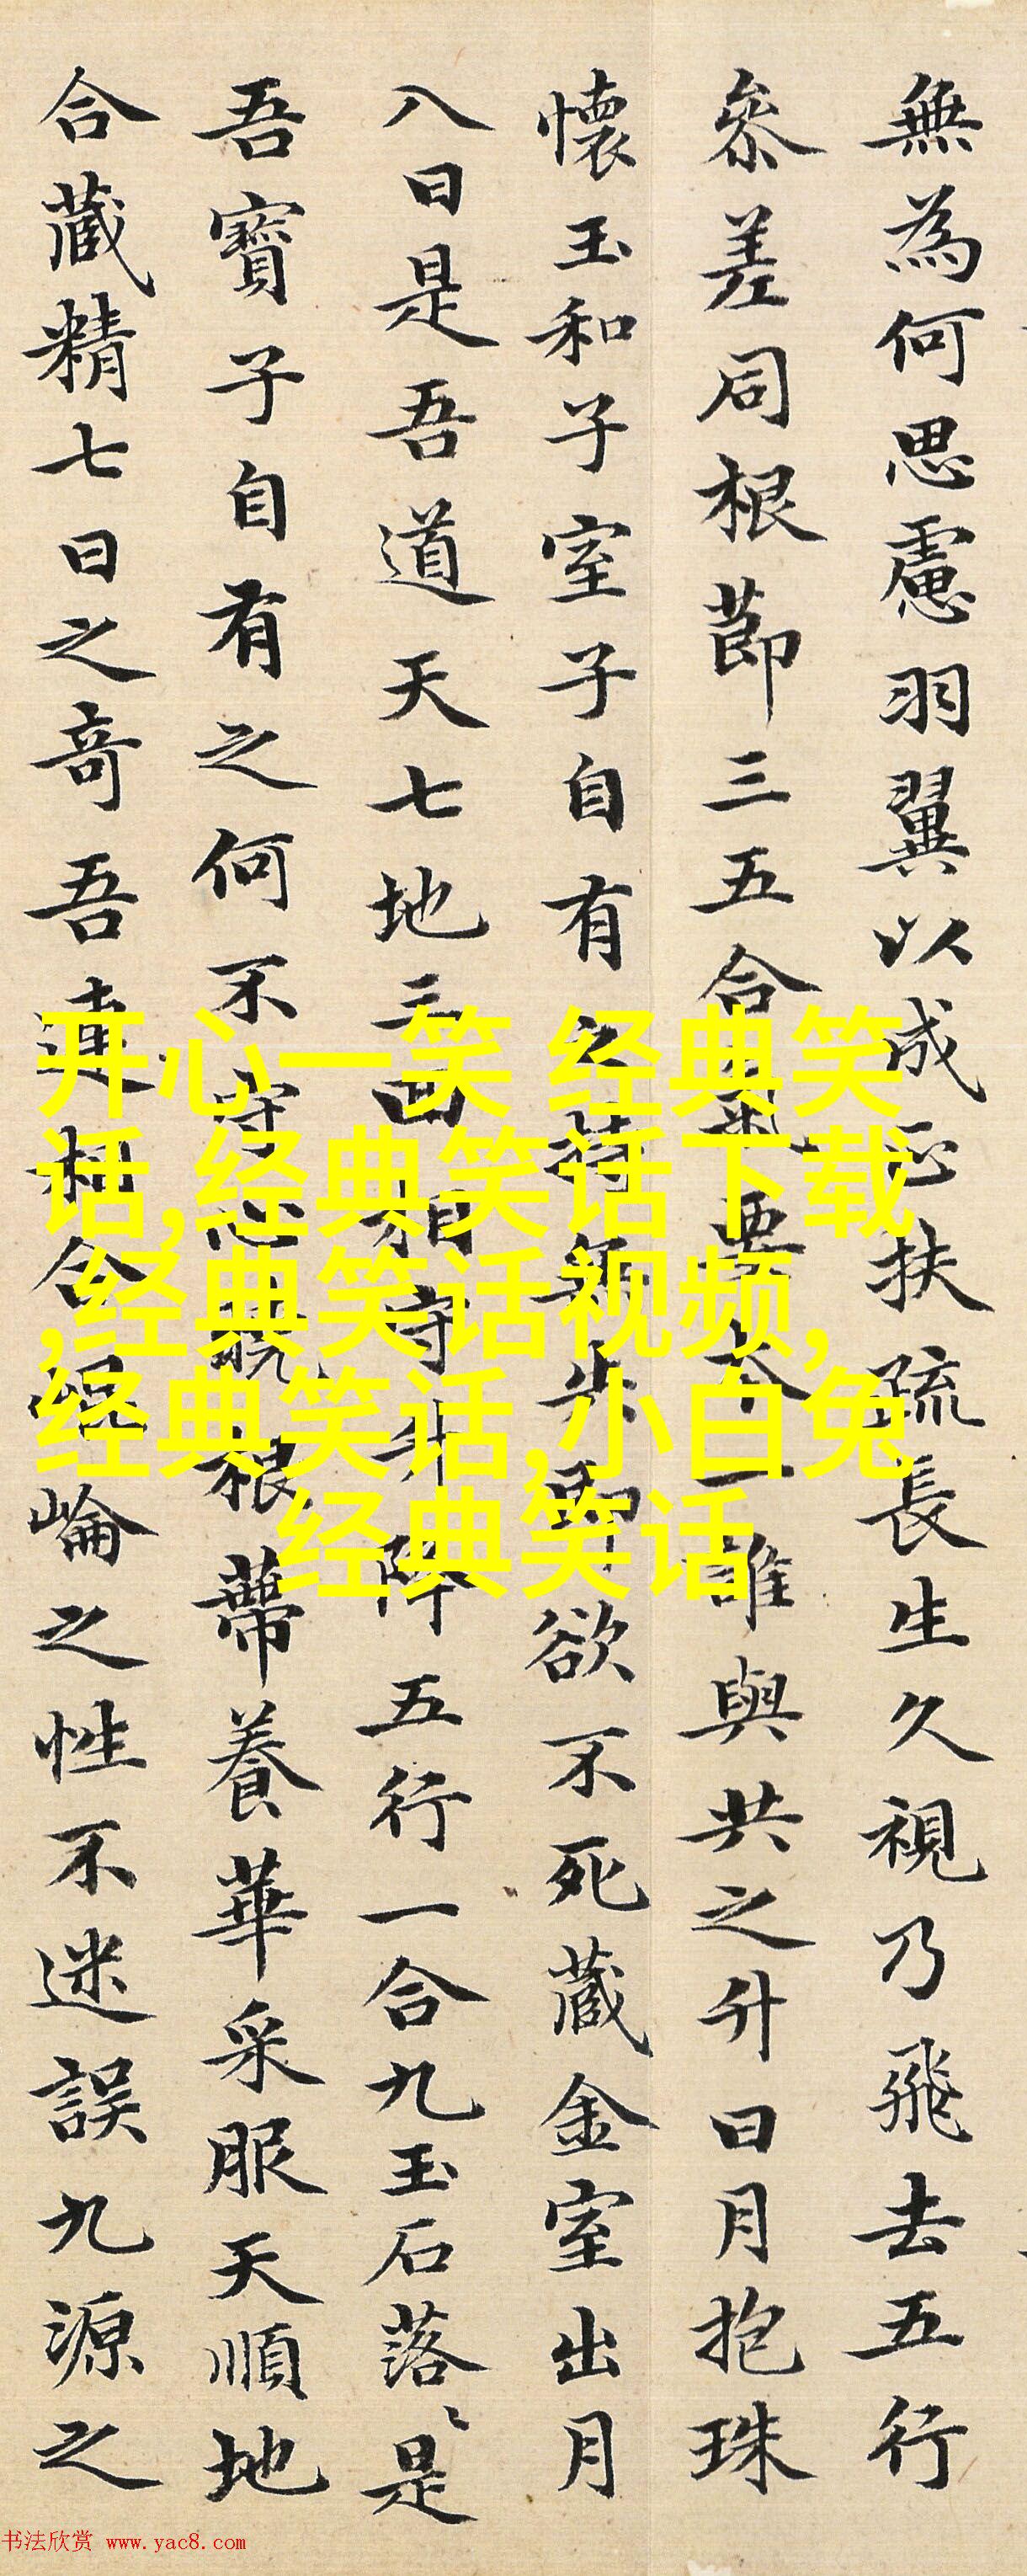 無為何思慮羽翼以成正扶疏長生久視乃飛去五行
叅差同根莭三五合氣要本一誰與共之升日月抱珠
懷玉和子室子自有之持無失即欲不死藏金室出月
入日是吾道天七地三回相守升降五行一合九玉石落〻是
吾寶子自有之何不守心曉根蔕養華采服天順地
合藏精七日之竒吾連相合崐崙之性不迷誤九源之
开心一笑 经典笑
话,经典笑话下载
,经典笑话视频,
经典笑话,小白兔
经典笑话
书法欣赏 www.yac8.com